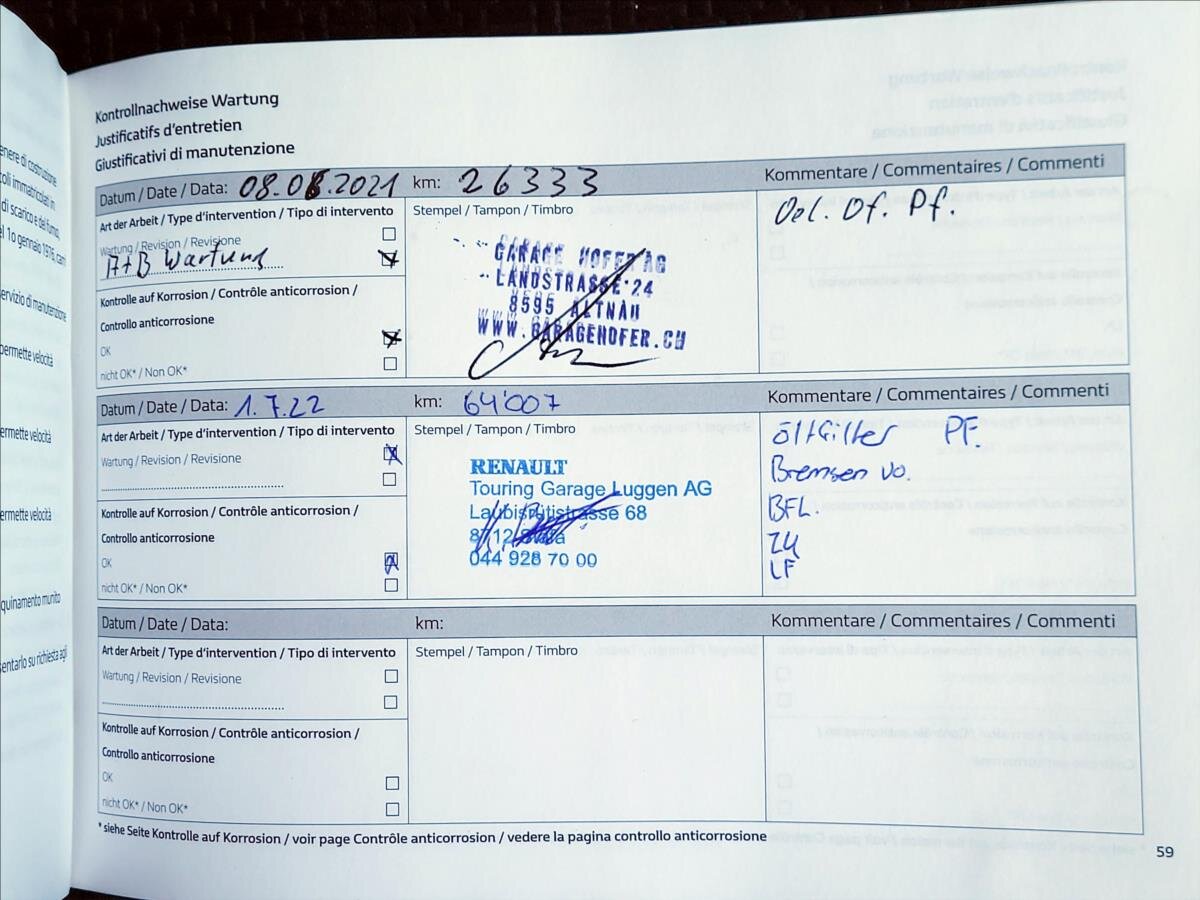 enere di costruzione
toli immatricolati in
di scarico e del fumo,
el 1o gennaio 1976, can
ervizio di manutenzione
permette velocità
ermette velocità
ermette velocità
quinamento munito
sentarlo su richiesta agli
Kontrollnachweise Wartung
Justificatifs d'entretien
Giustificativi di manutenzione
Datum / Date / Data: 08.06.2021 km: 26333 Kommentare / Commentaires / Commenti
Art der Arbeit / Type d'intervention / Tipo di intervento Stempel / Tampon / Timbro Oel. Of. Pf.
Wartung / Revision / Revisione
A+B Wartung
GARAGE HOFER AG
LANDSTRASSE 24
8595 ALTNAU
WWW.GARAGEHOFER.CH
Kontrolle auf Korrosion / Contrôle anticorrosion /
Controllo anticorrosione
OK
nicht OK* / Non OK*
Datum / Date / Data: 1.7.22 km: 64'007 Kommentare / Commentaires / Commenti
Art der Arbeit / Type d'intervention / Tipo di intervento Stempel / Tampon / Timbro
Wartung / Revision / Revisione
RENAULT
Touring Garage Luggen AG
Laubisrütistrasse 68
8712 Stäfa
044 928 70 00
Öl+Filter PF.
Bremsen vo.
BFL.
ZK
LF
Kontrolle auf Korrosion / Contrôle anticorrosion /
Controllo anticorrosione
OK
nicht OK* / Non OK*
Datum / Date / Data: km: Kommentare / Commentaires / Commenti
Art der Arbeit / Type d'intervention / Tipo di intervento Stempel / Tampon / Timbro
Wartung / Revision / Revisione
Kontrolle auf Korrosion / Contrôle anticorrosion /
Controllo anticorrosione
OK
nicht OK* / Non OK*
* siehe Seite Kontrolle auf Korrosion / voir page Contrôle anticorrosion / vedere la pagina controllo anticorrosione
59